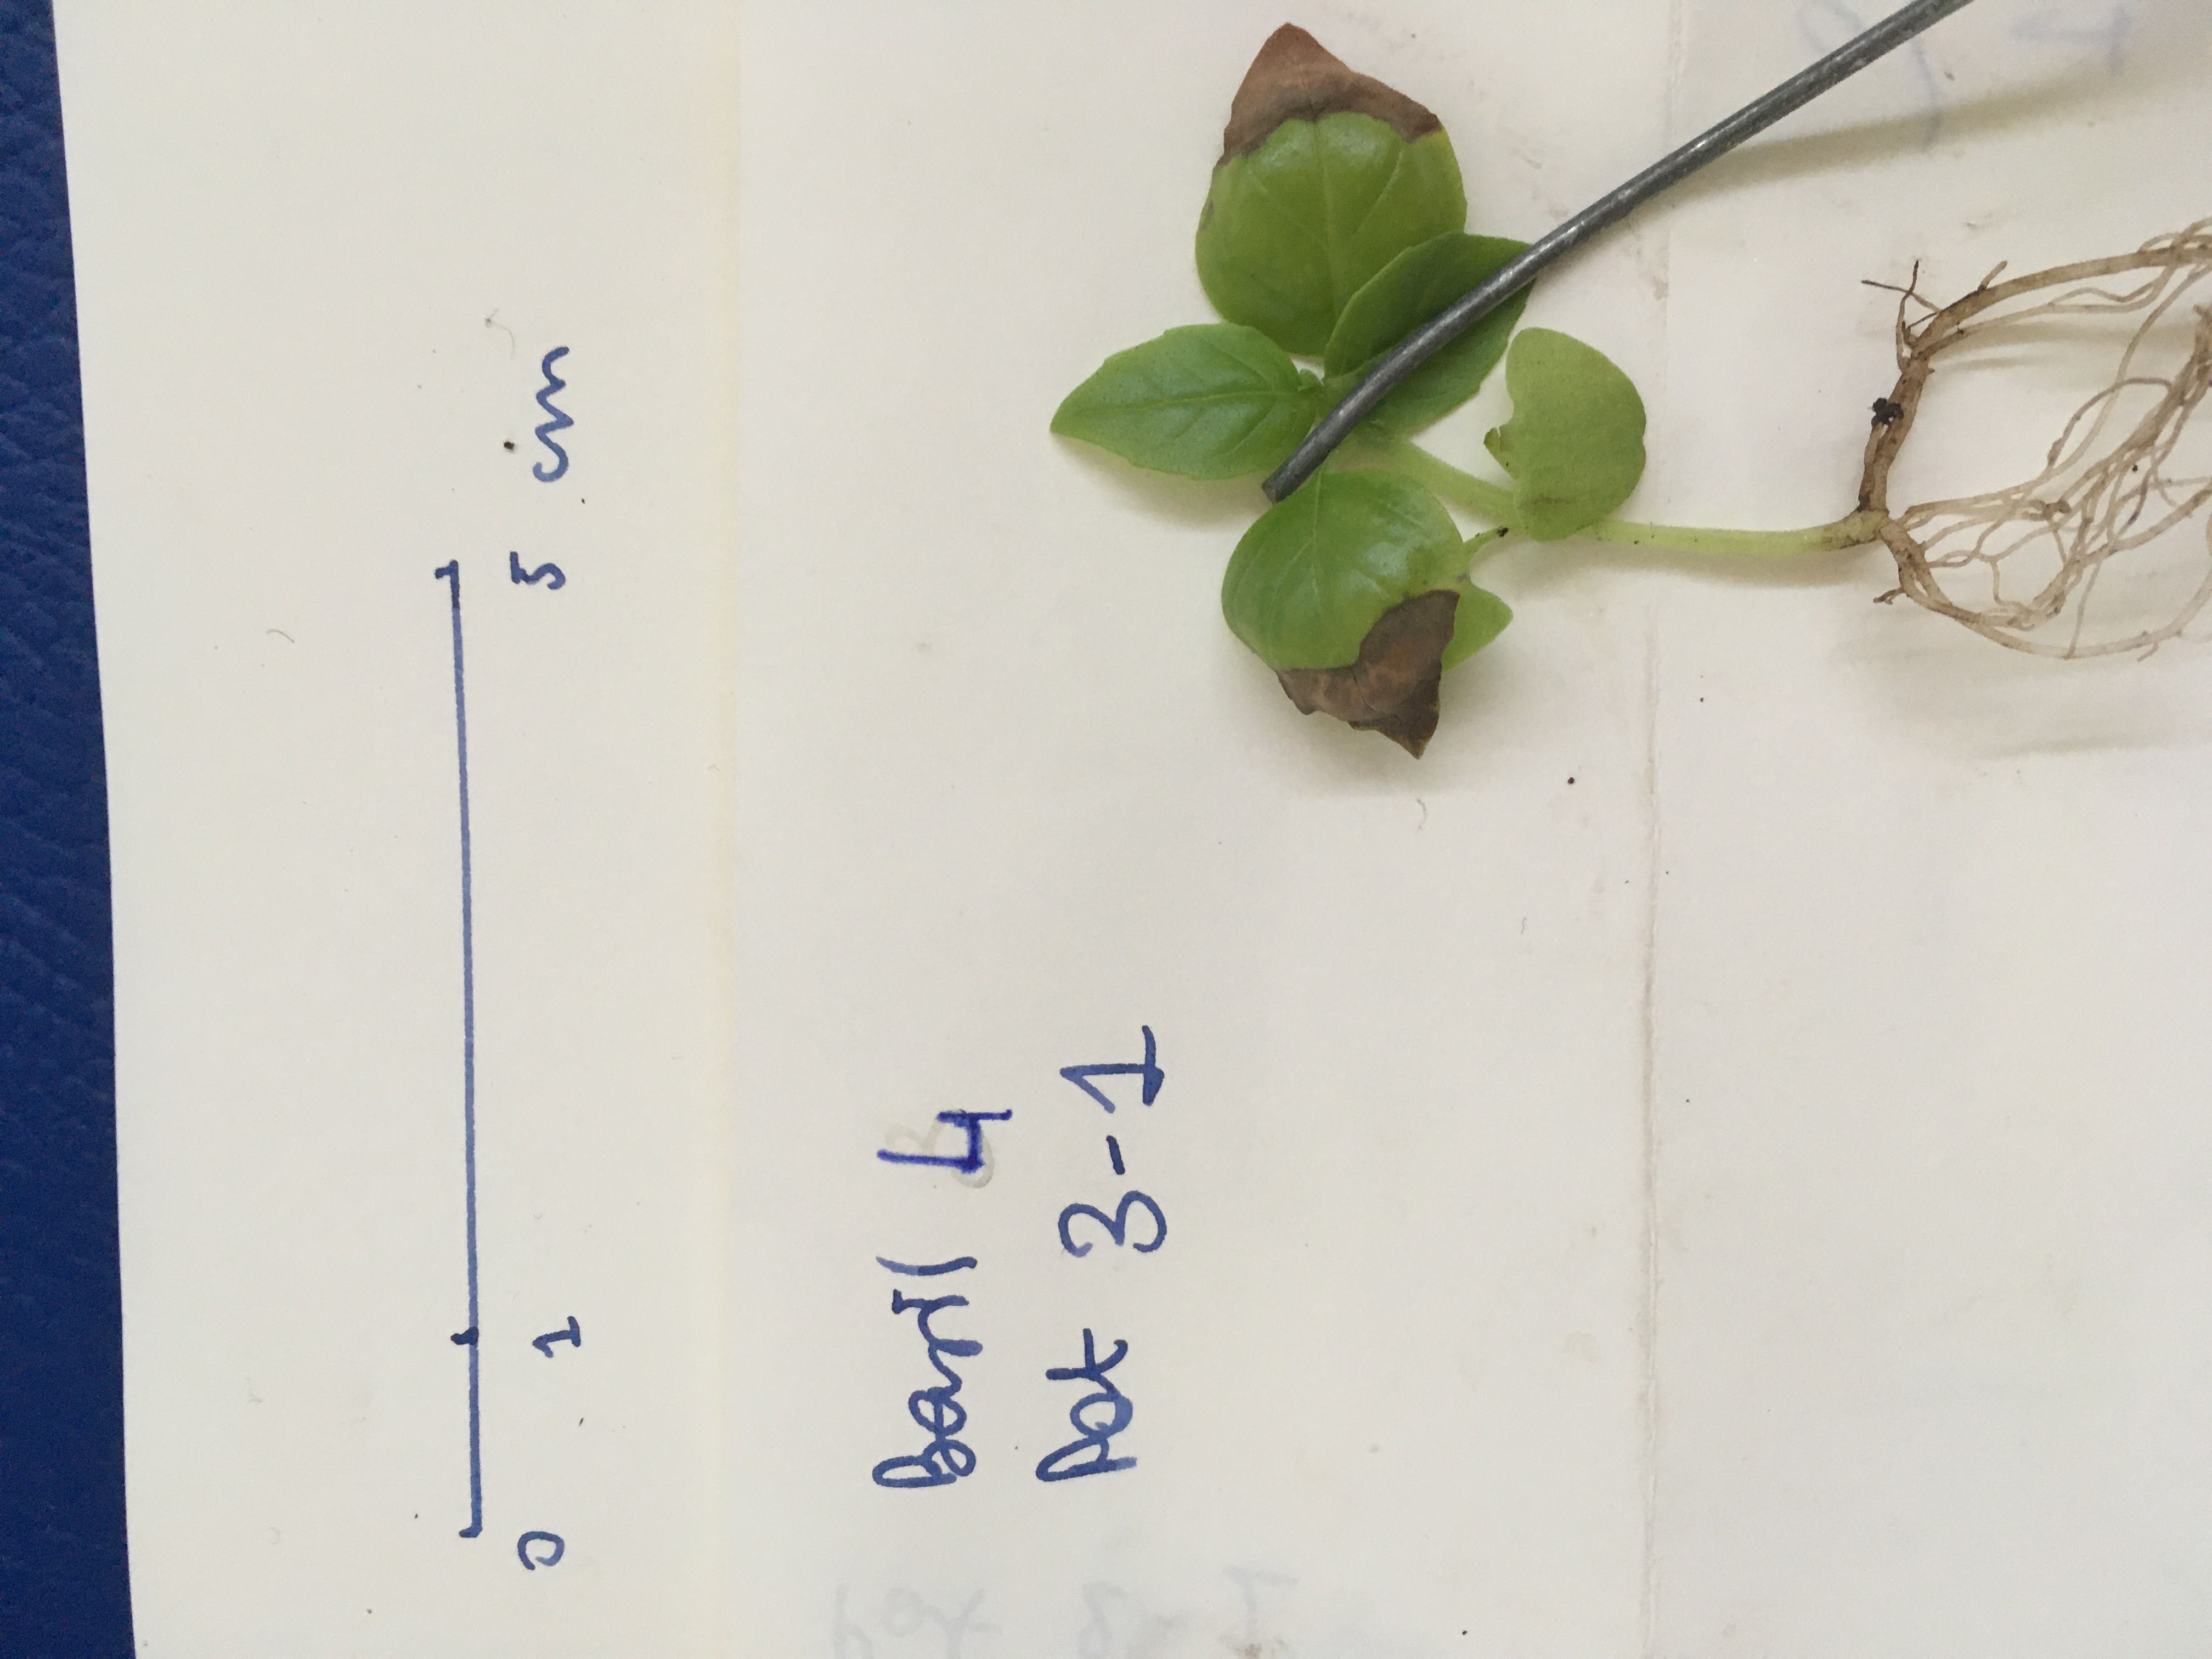 0 1 5 cm
Basil 4
Pot 3-1